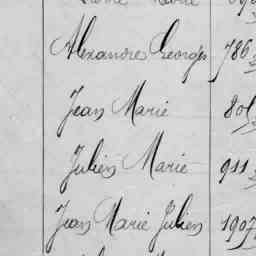 Alexandre Georges 786
Jean Marie 801
Julien Marie 911
Jean Marie Julien 1907